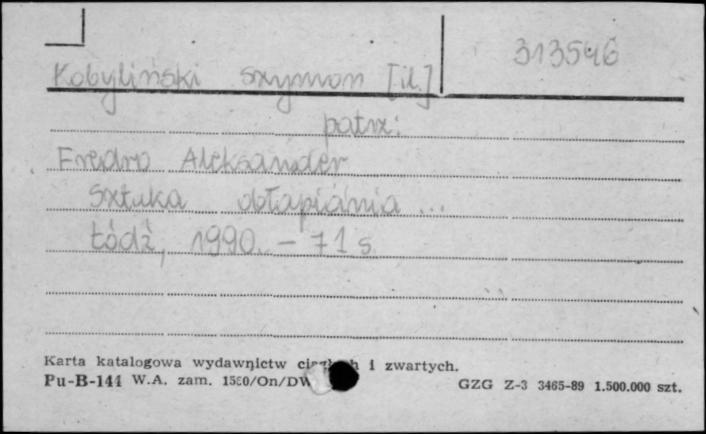 313546
Kobyliński Szymon [il.]
patrz:
Fredro Aleksander
Sztuka obłapiania ...
Łódź, 1990. - 71 s.
Karta katalogowa wydawnictw ciągłych i zwartych.
Pu-B-144 W.A. zam. 1580/On/DW
GZG Z-3 3465-89 1.500.000 szt.